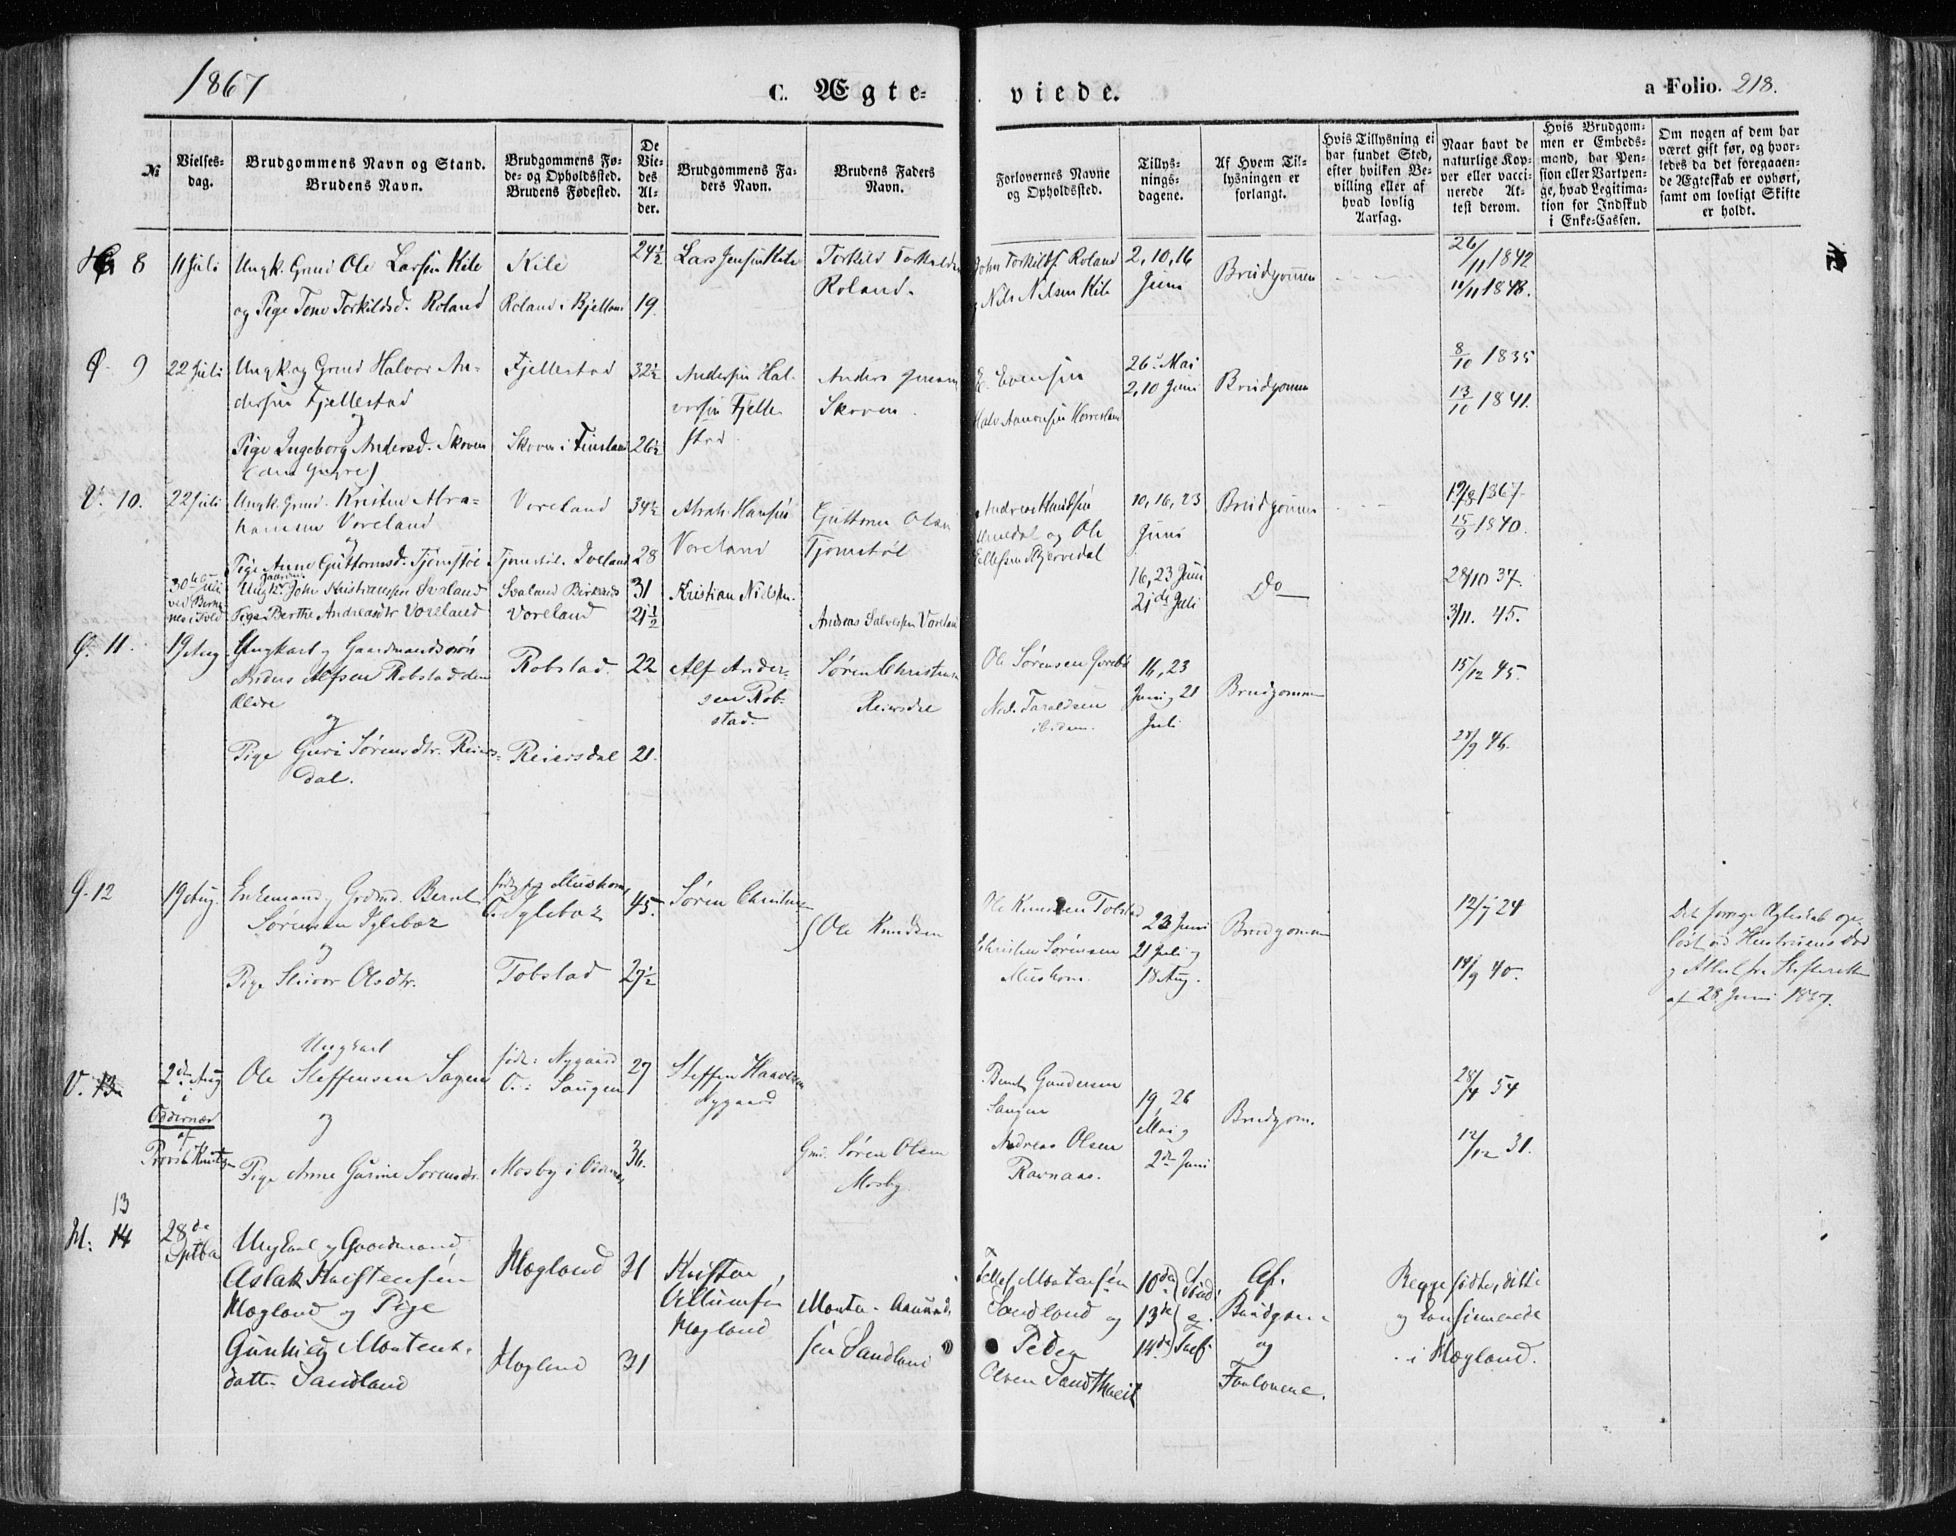 1867
C. Ægte-
viede.
a Folio. 218.
№
Vielses-
dag.
Brudgommens Navn og Stand.
Brudens Navn.
Brudgommens Fø-
de- og Opholdssted.
Brudens Fødested.
De
Vie-
des
Al-
der.
Brudgommens Fa-
ders Navn.
Brudens Faders
Navn.
Forlovernes Navne
og Opholdssted.
Tillys-
nings-
dagene.
Af Hvem Til-
lysningen er
forlangt.
Hvis Tillysning ei
har fundet Sted,
efter hvilken Be-
villing eller af
hvad lovlig
Aarsag.
Naar havt de
naturlige Kop-
per eller vacci-
nerede At-
test derom.
Hvis Brudgom-
men er Embeds-
mand, har Pen-
sion eller Vartpen-
ge, hvad Legitima-
tion for Indskud
i Enke-Cassen.
Om nogen af dem har
været gift før, og hvor-
ledes da det foregaaen-
de Ægteskab er ophørt,
samt om lovligt Skifte
er holdt.
8
11 Juli
Ungk. Grmd Ole Larsen Kile
og Pige Tone Torkildsd. Roland
Kile
Roland i Bjelland
24½
19.
Lars Jensen Kile
Torkild Torkildsen
Roland.
John Torkilds. Roland
og Nils Nilsen Kile
2, 10, 16
Juni
Brudgommen
26/11 1842
11/11 1848.
Ø. 9
22 Juli
Ungk. og Grmd Halvor An-
dersen Fjellestad
og
Pige Ingeborg Andersd. Skoven
(den yngre)
Fjellestad
Skoven i Finsland
32½
26½
Andersen Hal-
vorsen Fjelle-
stad.
Anders Jensen
Skoven.
E. Evensen
26. Mai
2, 10 Juni
Brudgommen
8/10 1835
13/10 1841.
V. 10.
22 Juli
Ungk. Grmd. Kristen Abra-
hamsen Voreland
og
Pige Anne Guttormsd. Tjomstøl
Voreland
Tjomstøl i Iveland
34½
28
Abrah. Hansen
Voreland
Guttorm Olsen
Tjomstøl
og Ole
10, 16, 23
Juni
Brudgommen
19/8 1867.
15/9 1840.
30te Juli
Ungk. John Kristiansen Svaland
Pige Berthe Andreasdtr Voreland
Svaland Birkenes
Voreland
31
21½
Kristian Nielsen.
Andreas Salvesen Voreland
16, 23 Juni
21de Juli
Do
28/10 37.
3/11. 45.
Ø. 11.
19 Aug.
Ungkarl og Gaardmandssøn
Anders Alfsen Robstad den
Ældre
og
Pige Guri Sørensdtr. Reiers-
dal.
Robstad.
Reiersdal
22
21.
Alf Ander-
sen Rob-
stad.
Søren Christensen
Reiersdal
Ole Sørensen
Taraldsen
ibidem.
16, 23
Juni og 21
Juli
Brudgommen
15/12 45.
28/9 46.
Ø. 12
19 Aug.
Enkemand og Grdmd. Bernt
Sørensen Iglebæk
og
Pige Sluvor Olsdtr.
Iglebæk
Tobstad
45.
27½
Søren Christensen
Ole Knudsen
Ole Knudsen Tobstad
Christen Sørensen
Mushom.
23 Juni
21 Juli og
18 Aug.
Brudgommen
12/7 24
14/9 40.
Det forrige Ægteskab op-
løst ved Hustruens Død
og Attest fra Skifteretten
af 28 Juni 1867.
V. 13
2den Aug
i
Oddernæs
af
Provst Knutzen
Ungkarl
Ole Steffensen Saugen
og
Pige Anne Gurine Sørensdtr.
født: Nygaard
O.: Saugen
Mosby i Oddernæs
27
36.
Steffen Haavorsen
Nygaard
Gmd. Søren Olsen
Mosby.
Bernt Gundersen
Saugen
Andreas Olsen
Ravnaas.
19, 26
Mai og
2den Juni
Brudgom.
28/4 54
12/12 31.
13
H: 14
28de
Septbr
Ungkarl og Gaardmand
Aslak Kristensen
Hægland og Pige
Gunhild Mortens-
datter Sandland
Hægland
Hægland
31
31
Kristen
Hægland
Morten Aamunds-
sen Sandland
Tellef Mortensen
Sandland og
Peder
Olsen Sandthveit
10de
13de
14de
Af.
Brudgom-
og
Forloverne.
Begge fødte, ditto
og Confirmerede
i Hægland.